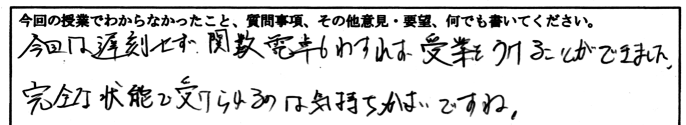 今回の授業でわからなかったこと、質問事項、その他意見・要望、何でも書いてください。
今回は遅刻せず、関数電卓もわすれず受業をうけることができました。
完全な状態で受けられるのは気持ちがいいですね。